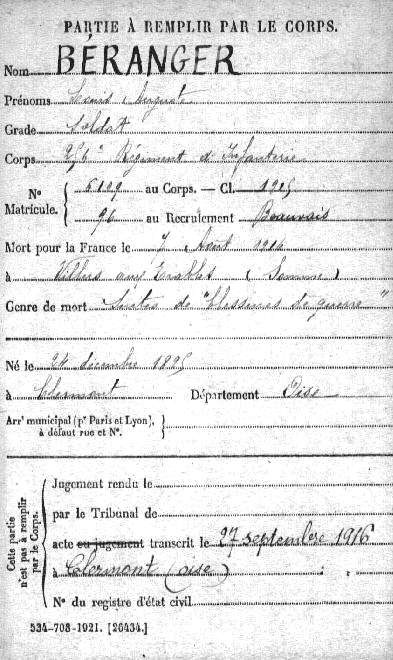 PARTIE À REMPLIR PAR LE CORPS.
Nom BÉRANGER
Prénoms Louis Auguste
Grade Soldat
Corps Régiment d'Infanterie
N° Matricule. { 5199 au Corps. — Cl. 1915
96 au Recrutement Beauvais
Mort pour la France le 7 Août 1916
à Villers aux Erables (Somme)
Genre de mort Suites de "blessures de guerre"
Né le 24 décembre 1895
à Clermont Département Oise
Arr' municipal (p' Paris et Lyon),
à défaut rue et N°.
Cette partie n'est pas à remplir par le Corps.
Jugement rendu le
par le Tribunal de
acte ou jugement transcrit le 27 septembre 1916
à Clermont (oise)
N° du registre d'état civil
534-708-1921. [26434.]